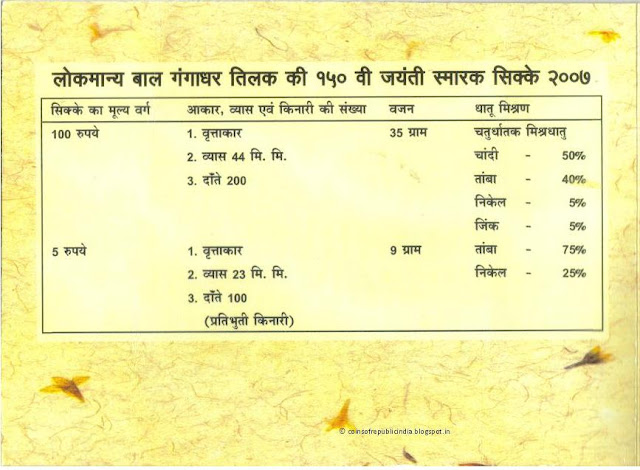 लोकमान्य बाल गंगाधर तिलक की १५० वी जयंती स्मारक सिक्के २००७
सिक्के का मूल्य वर्ग आकार, व्यास एवं किनारी की संख्या वजन धातू मिश्रण
100 रुपये 1. वृत्ताकार 35 ग्राम चतुर्धातक मिश्रधातु
2. व्यास 44 मि. मि. चांदी - 50%
3. दाँते 200 तांबा - 40%
निकेल - 5%
जिंक - 5%
5 रुपये 1. वृत्ताकार 9 ग्राम तांबा - 75%
2. व्यास 23 मि. मि. निकेल - 25%
3. दाँते 100
(प्रतिभुती किनारी)
© coinsofrepublicindia.blogspot.in